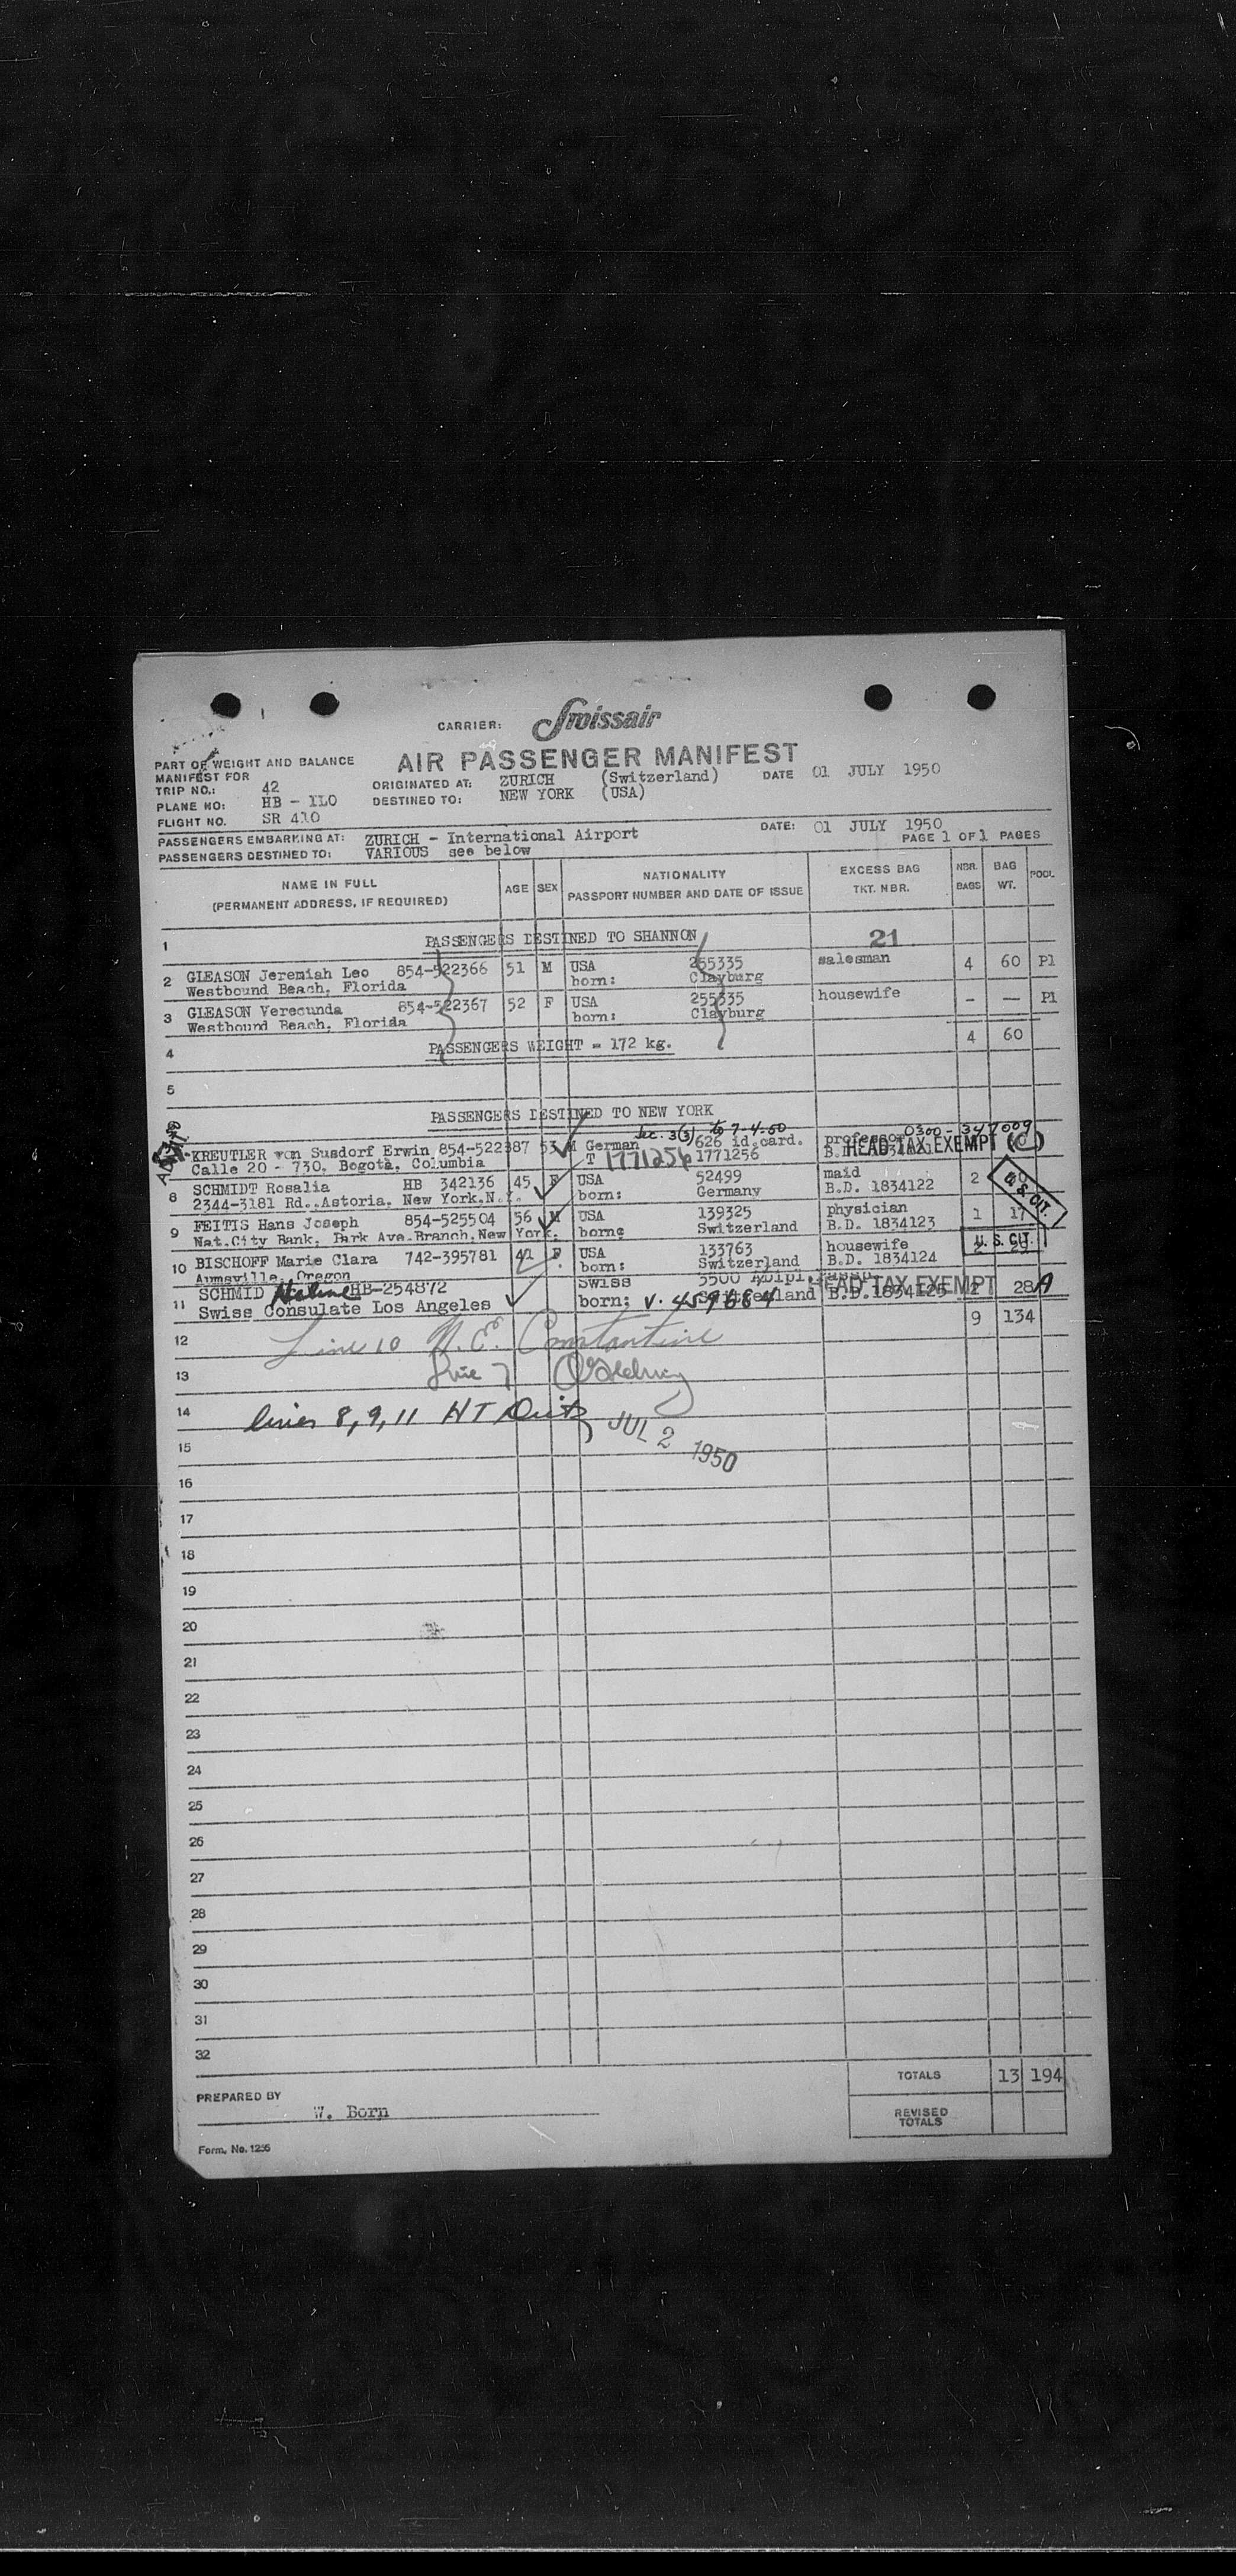 CARRIER: Swissair
AIR PASSENGER MANIFEST
PART OF WEIGHT AND BALANCE
MANIFEST FOR
TRIP NO.: 42
ORIGINATED AT: ZURICH (Switzerland) DATE 01 JULY 1950
PLANE NO: HB - ILO
DESTINED TO: NEW YORK (USA)
FLIGHT NO. SR 410
PASSENGERS EMBARKING AT: ZURICH - International Airport DATE: 01 JULY 1950
PASSENGERS DESTINED TO: VARIOUS see below PAGE 1 OF 1 PAGES
NAME IN FULL
(PERMANENT ADDRESS, IF REQUIRED)
AGE SEX
NATIONALITY
PASSPORT NUMBER AND DATE OF ISSUE
EXCESS BAG
TKT. NBR.
NBR.
BAGS
BAG
WT.
POOL
1 PASSENGERS DESTINED TO SHANNON 21
2 GLEASON Jeremiah Leo 854-522366 51 M USA 255335 salesman 4 60 P1
Westbound Beach, Florida born: Clayburg
3 GLEASON Verecunda 854-522367 52 F USA 255335 housewife - — P1
Westbound Beach, Florida born: Clayburg
4 PASSENGERS WEIGHT = 172 kg. 4 60
5
PASSENGERS DESTINED TO NEW YORK
Sec. 3(3) to 7-4-50 0300-347009
KREUTLER von Susdorf Erwin 854-522387 53 M German 626 id.card. professor HEAD TAX EXEMPT (C)
Calle 20 - 730, Bogotà, Columbia T 1771256 1771256 B.D.
8 SCHMIDT Rosalia HB 342136 45 F USA 52499 maid 2 U. S. CIT.
2344-3181 Rd..Astoria, New York.N.Y. born: Germany B.D. 1834122
9 FEITIS Hans Joseph 854-525504 56 M USA 139325 physician 1 17
Nat.City Bank, Park Ave.Branch,New York. borng Switzerland B.D. 1834123
10 BISCHOFF Marie Clara 742-395781 42 F USA 133763 housewife U. S. CIT.
Aumsville, Oregon born: Switzerland B.D. 1834124
11 SCHMID HB-254872 Swiss 3500 HEAD TAX EXEMPT 2 28 A
Swiss Consulate Los Angeles born: V. 459664 Switzerland B.D. 1834125
12 Line 10 N. E. Constantine 9 134
13 Line 7
14 lines 8, 9, 11 HT Dietz
JUL 2 1950
15
16
17
18
19
20
21
22
23
24
25
26
27
28
29
30
31
32
TOTALS 13 194
PREPARED BY W. Born
REVISED
TOTALS
Form. No. 1256